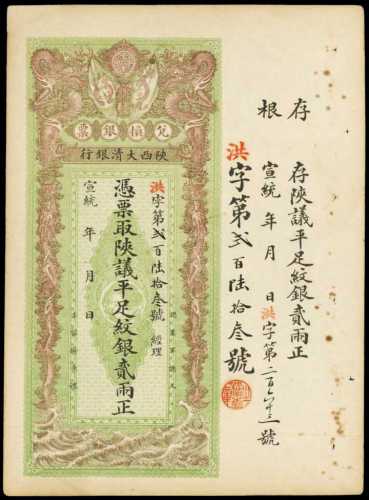 存根
存陝議平足紋銀貳兩正
宣統 年 月 日 洪字第二百六十三號
洪字第貳百陸拾叁號
兌換銀票
陝西大清銀行
洪字第貳百陸拾叁號 經理
憑票取陝議平足紋銀貳兩正
宣統 年 月 日